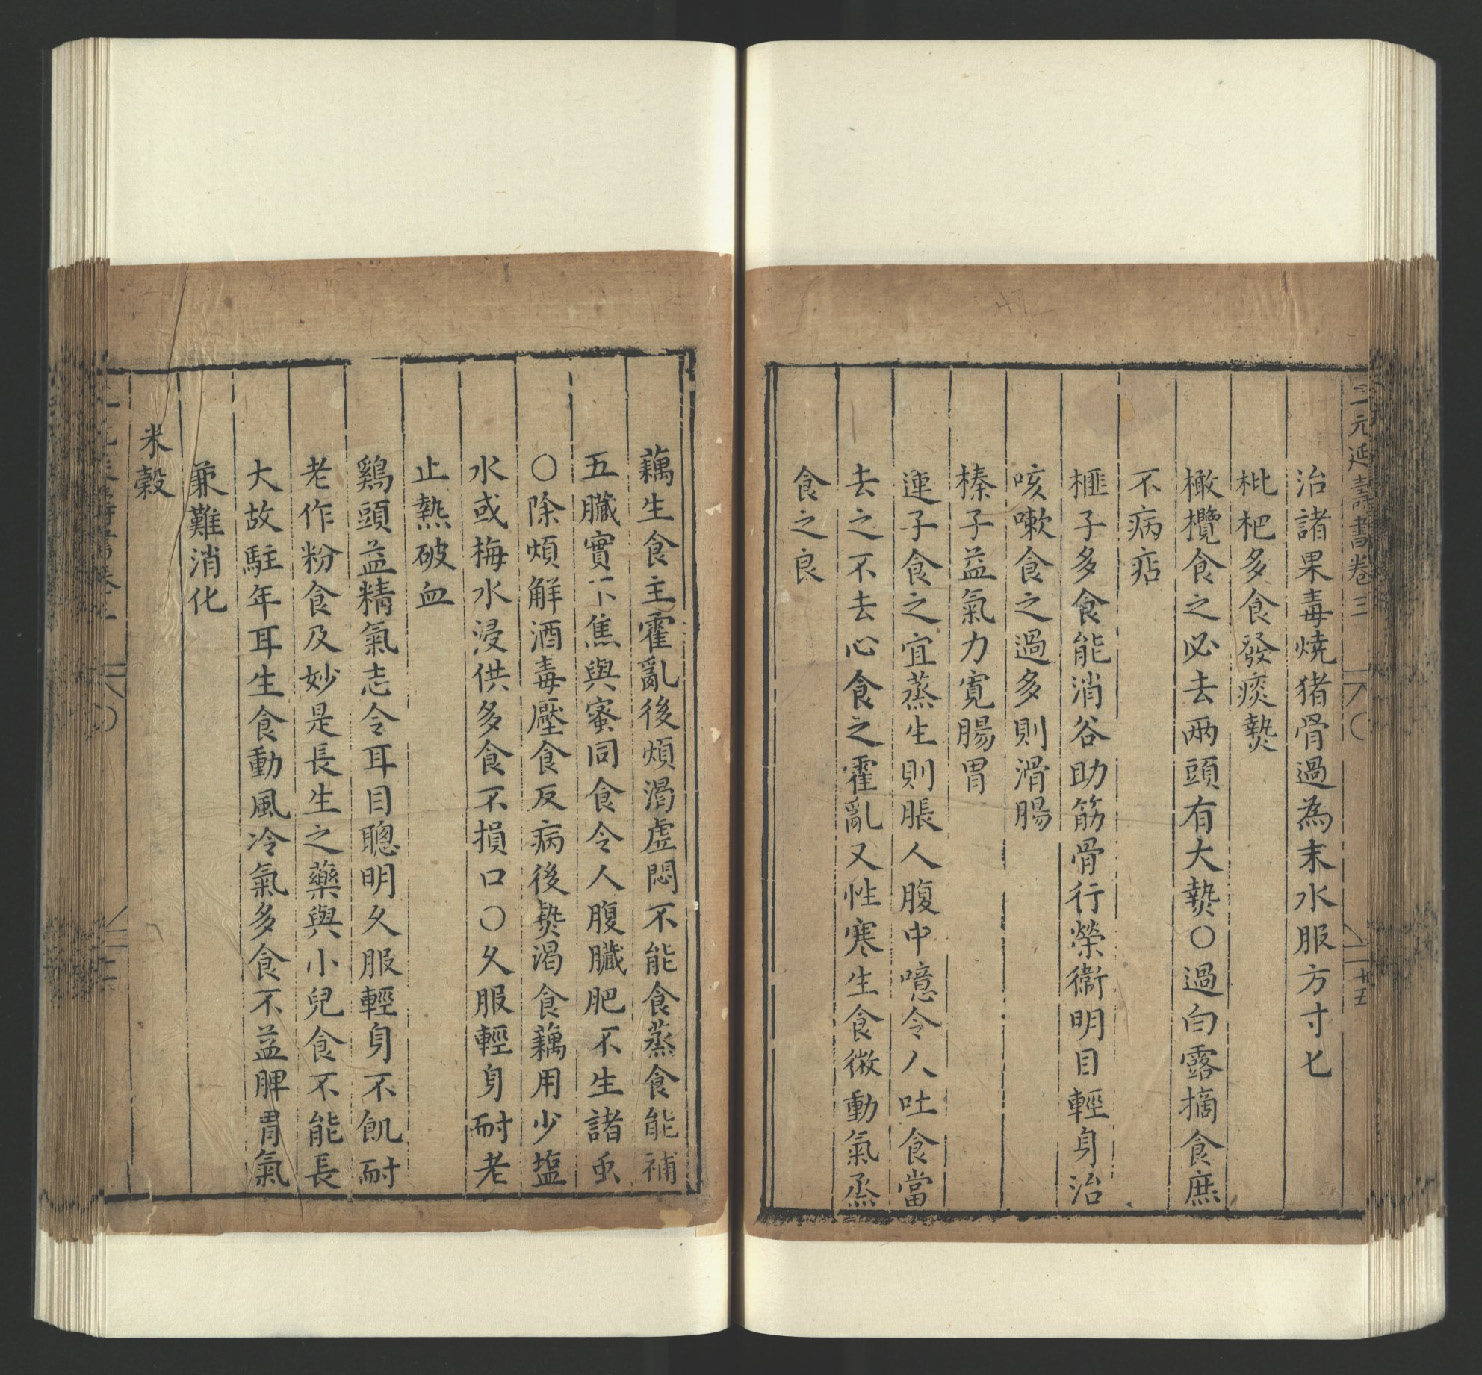 三元延壽書卷三
廿五
治諸果毒燒猪骨過為末水服方寸匕
枇杷多食發痰熱
橄欖食之必去兩頭有大熱〇過白露摘食庶
不病痁
榧子多食能消谷助筋骨行榮衛明目輕身治
咳嗽食之過多則滑腸
榛子益氣力寛腸胃
蓮子食之宜蒸生則脹人腹中噫令人吐食當
去之不去心食之霍亂又性寒生食微動氣烝
食之良
藕生食主霍亂後煩渴虚悶不能食蒸食能補
五臟實下焦與蜜同食令人腹臟肥不生諸䖝
〇除煩解酒毒壓食及病後熱渴食藕用少塩
水或梅水浸供多食不損口〇久服輕身耐老
止熱破血
鷄頭益精氣志令耳目聰明久服輕身不飢耐
老作粉食及妙是長生之藥與小兒食不能長
大故駐年耳生食動風冷氣多食不益脾胃氣
兼難消化
米糓